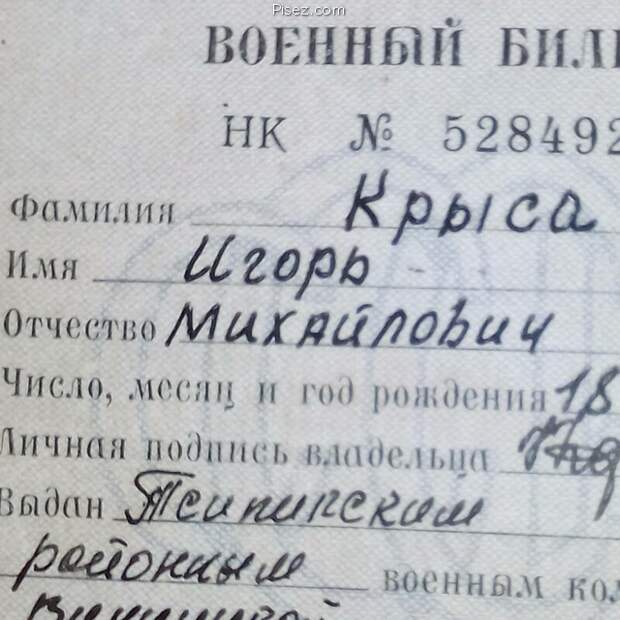 Pisez.com
ВОЕННЫЙ БИЛ
НК № 528492
Фамилия Крыса
Имя Игорь
Отчество Михайлович
Число, месяц и год рождения 18
Личная подпись владельца
Выдан
районным военным ко